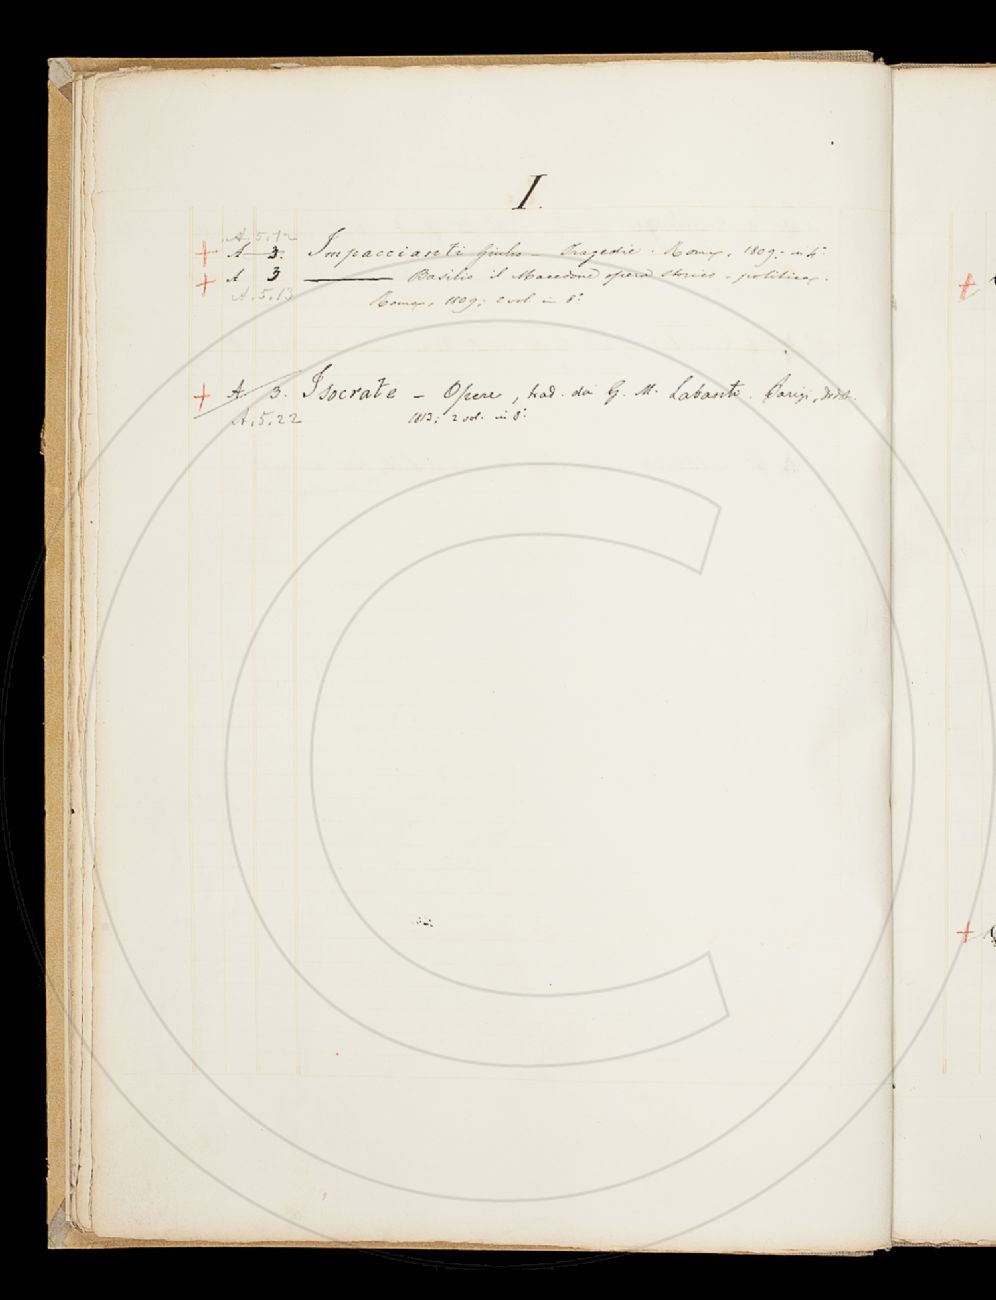 I.
A.5.12
+ A 3. Impaccianti Giulio - Tragedie. Roma, 1809; in 4°
+ A 3 ——— Basilio il Macedone opera storico-politica.
A.5.13 Roma, 1809; 2 vol. in 8°.
+ A 3. Isocrate - Opere, trad. da G. M. Labanti. Parigi, Didot.
A.5.22 1813; 2 vol. in 8°.
+
+